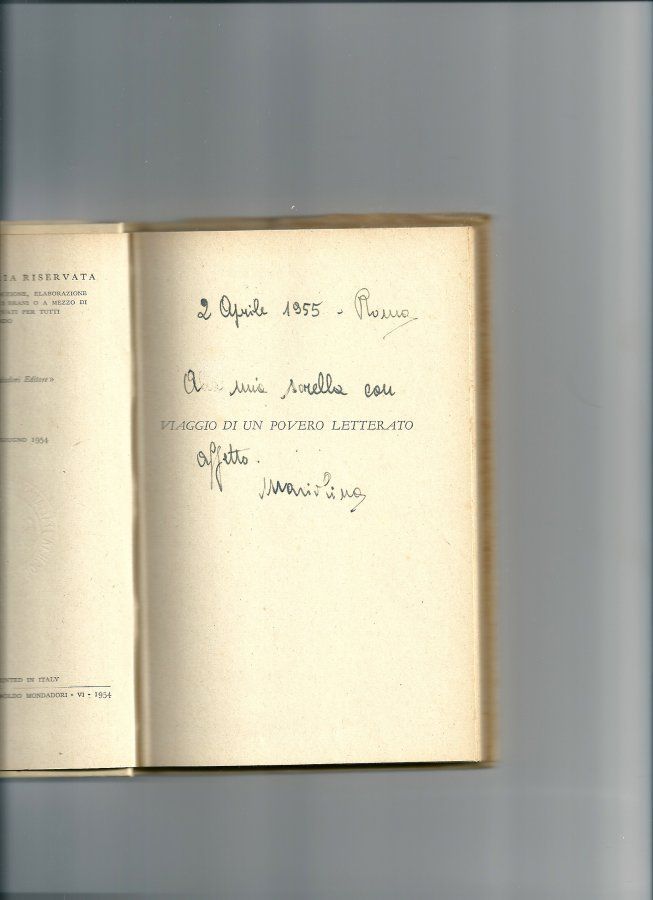 IA RISERVATA
UZIONE, ELABORAZIONE
BRANI O A MEZZO DI
VATI PER TUTTI
Editore»
GIUGNO 1954
INTED IN ITALY
OLDO MONDADORI • VI - 1954
2 Aprile 1955 - Roma
Alla mia sorella con
VIAGGIO DI UN POVERO LETTERATO
affetto.